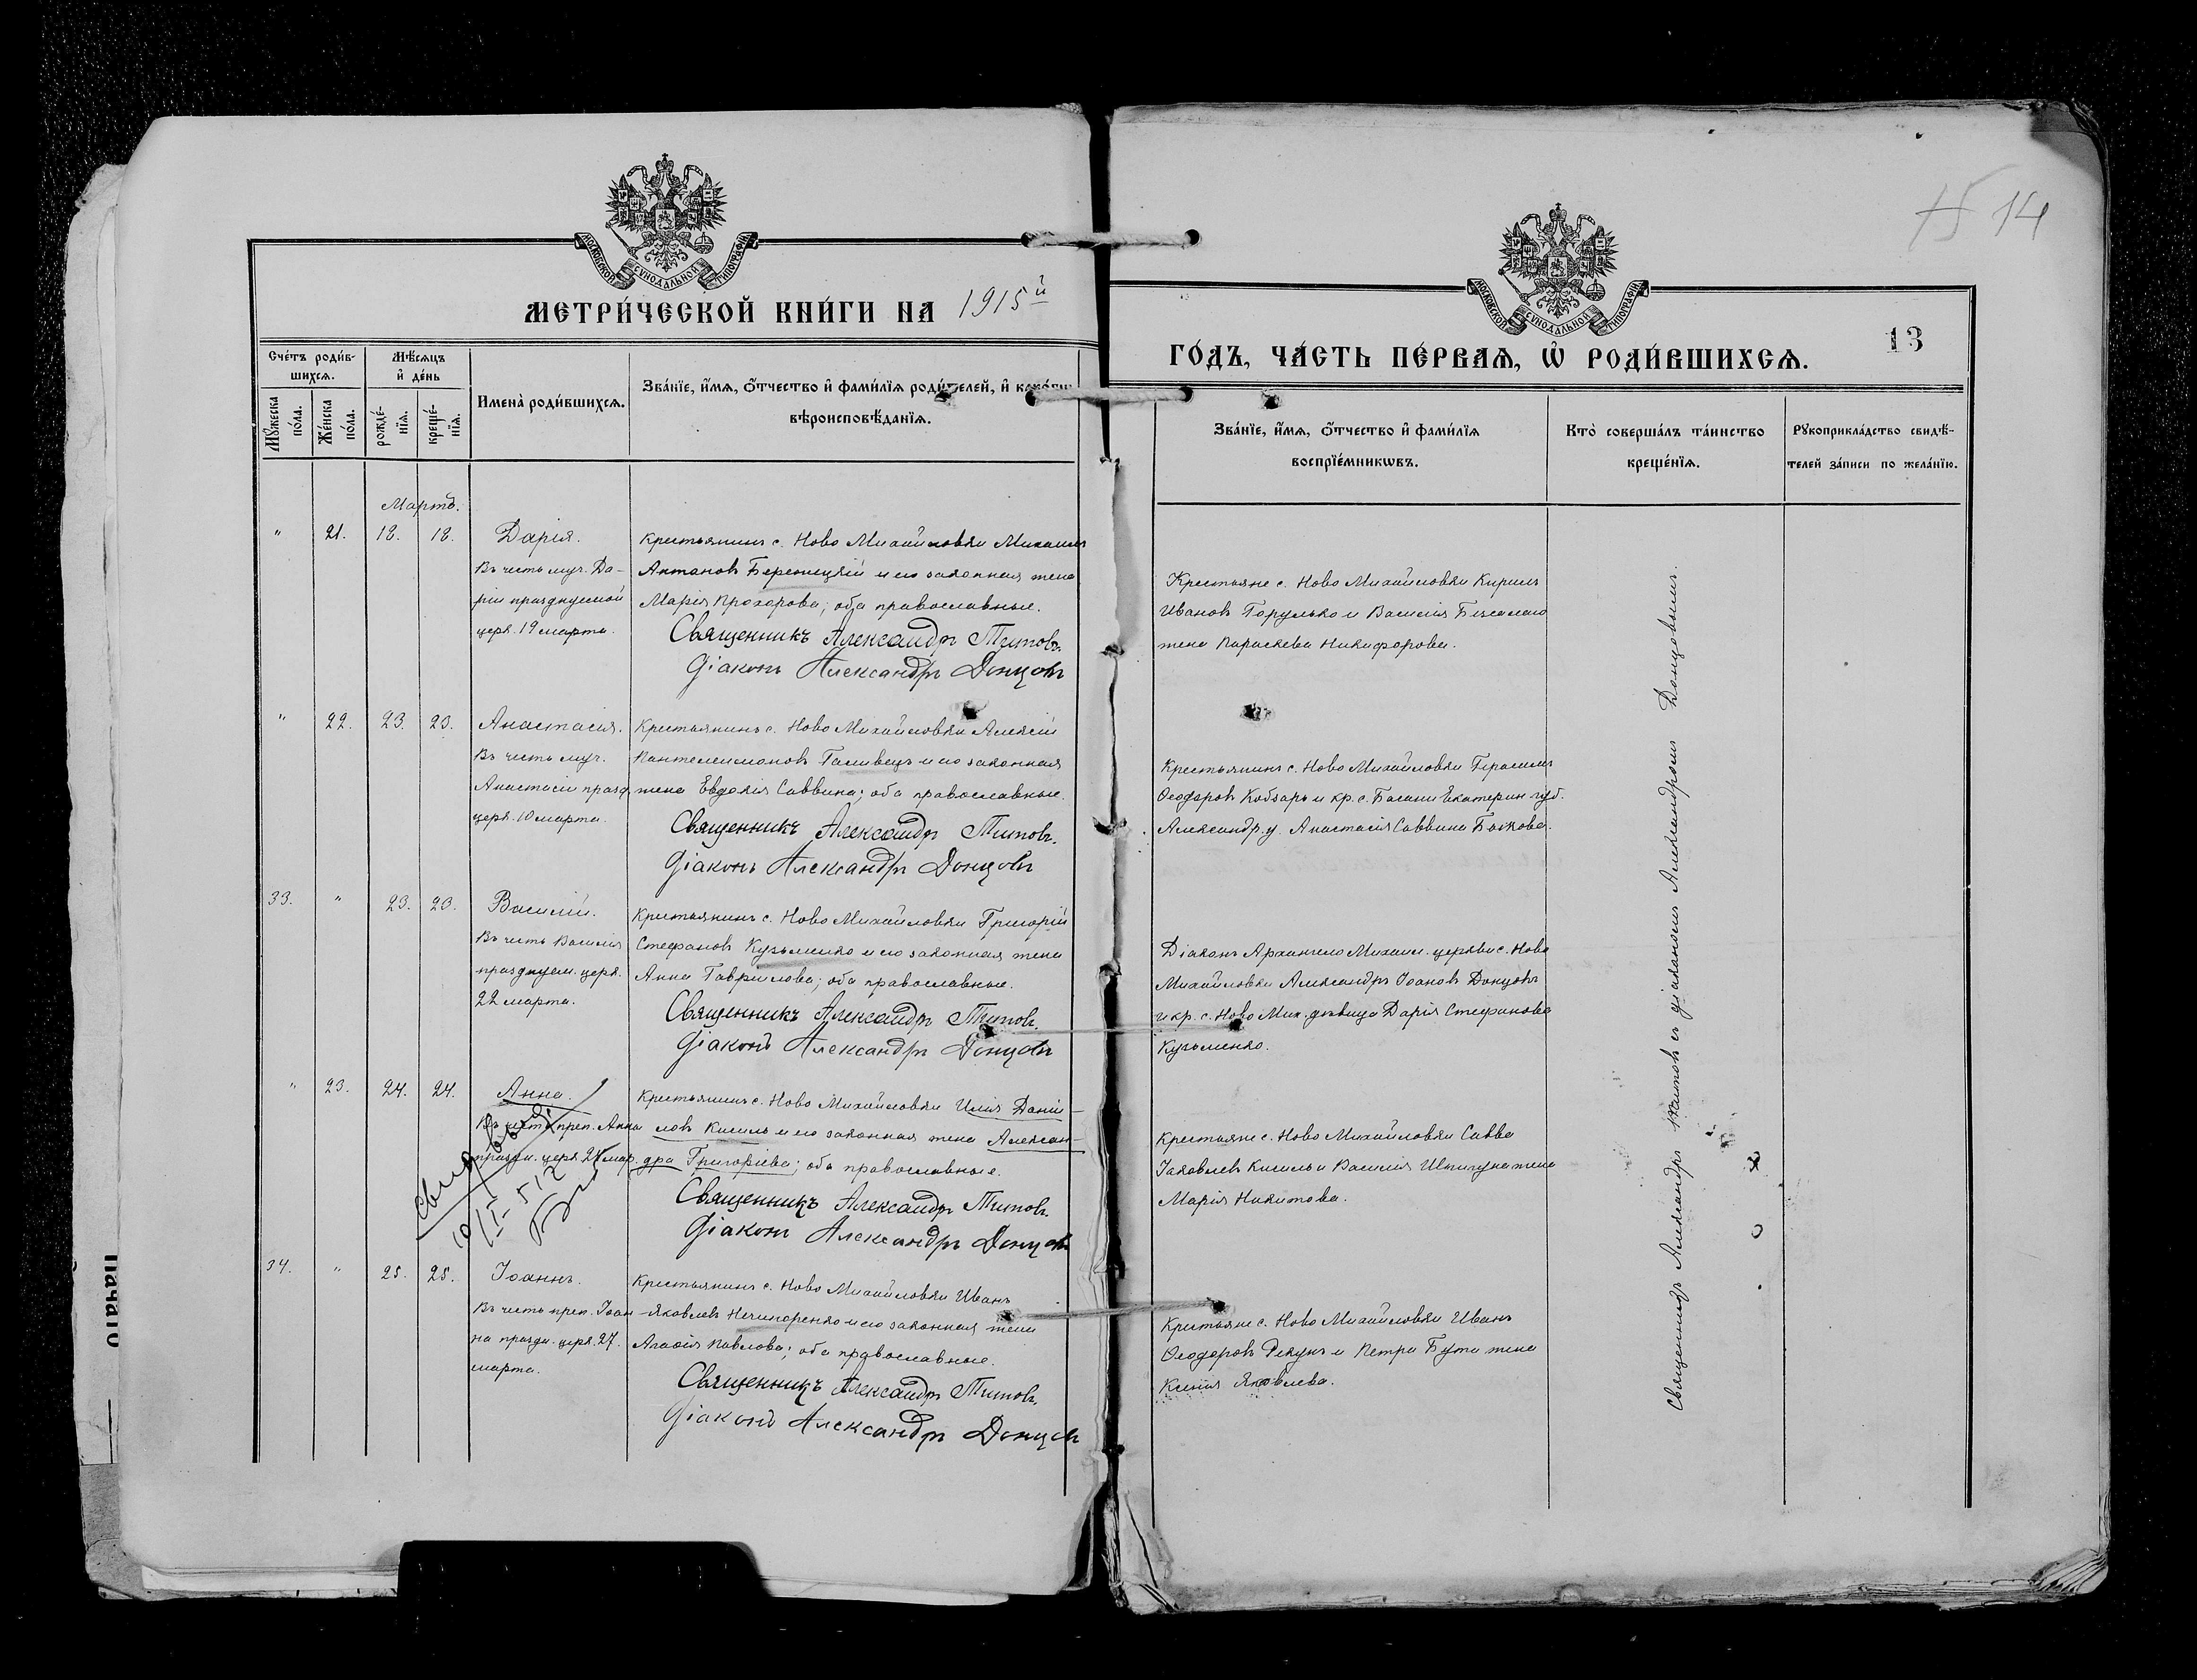 15 14
МОСКОВСКОЙ СѴНОДАЛЬНОЙ ТИПОГРАФІИ
МЕТРИ́ЧЕСКОЙ КНИ́ГИ НА 1915й
МОСКОВСКОЙ СѴНОДАЛЬНОЙ ТИПОГРАФІИ
ГО́ДЪ, ЧА́СТЬ ПЕ́РВАѦ, Ѽ РОДИ́ВШИХСѦ.
13
Сче́тъ роди́в-
шихсѧ.
Мꙋ́жеска по́ла.
Же́нска по́ла.
Мѣ́сѧцъ
и҆ де́нь
рожде́-
нїѧ.
креще́-
нїѧ.
И҆мена̀ роди́вшихсѧ.
Зва́нїе, и҆́мѧ, ѻ҆́тчество и҆ фами́лїѧ роди́телей, и҆ како́гѡ
вѣроисповѣ́данїѧ.
Зва́нїе, и҆́мѧ, ѻ҆́тчество и҆ фами́лїѧ
воспрїе́мникѡвъ.
Кто̀ соверша́лъ та́инство
креще́нїѧ.
Рꙋкоприкла́дство свидѣ́-
телей за́писи по жела́нїю.
Мартъ.
" 21. 18. 18. Дарія.
Въ честь муч. Да-
ріи празднуемой
церк. 19 марта.
Крестьянинъ с. Ново Михайловки Михаилъ
Антоновъ Бережецкій и его законная жена
Марія Прохорова; оба православные.
Священникъ Александръ Титовъ.
Діаконъ Александръ Донцовъ
Крестьяне с. Ново Михайловки Кириллъ
Ивановъ Горулько и Василія
жена Параскева Никифорова.
" 22. 23. 23. Анастасія.
Въ честь муч.
Анастасіи празд.
церк. 10 марта.
Крестьянинъ с. Ново Михайловки Алексій
Пантелеимоновъ Галивецъ и его законная
жена Евдокія Саввина; оба православные.
Священникъ Александръ Титовъ.
Діаконъ Александръ Донцовъ
Крестьянинъ с. Ново Михайловки Герасимъ
Ѳеодоровъ Кобзарь и кр. с. Басани Екатерин. губ.
Александр. у. Анастасія Саввина
33. " 23. 23. Василій.
Въ честь Василія
празднуем. церк.
22 марта.
Крестьянинъ с. Ново Михайловки Григорій
Стефановъ Кузьменко и его законная жена
Анна Гавриилова; оба православные.
Священникъ Александръ Титовъ.
Діаконъ Александръ Донцовъ
Діаконъ Архангело Михаил. церкви с. Ново
Михайловки Александръ Іоановъ Донцовъ
и кр. с. Ново Мих. дѣвица Дарія Стефанова
Кузьменко.
" 23. 24. 24. Анна.
Въ честь преп. Анна
праздн. церк. 24 мар.
Крестьянинъ с. Ново Михайловки Илія Даніи-
ловъ Кисиль и его законная жена Алексан-
дра Григоріева; оба православные.
Священникъ Александръ Титовъ.
Діаконъ Александръ Донцовъ
Крестьяне с. Ново Михайловки Савва
Іаковлевъ Кисиль и Василія жена
Марія Никитова.
34. " 25. 25. Іоаннъ.
Въ честь преп. Іоан-
на праздн. церк. 27.
марта.
Крестьянинъ с. Ново Михайловки Иванъ
Яковлевъ Нечипоренко и его законная жена
Агаѳія Павлова; оба православные.
Священникъ Александръ Титовъ.
Діаконъ Александръ Донцовъ
Крестьяне с. Ново Михайловки Иванъ
Ѳеодоровъ Рекунъ и Петра Бута жена
Ксенія Яковлева.
Священникъ Александръ Титовъ съ діакономъ Александромъ Донцовымъ.